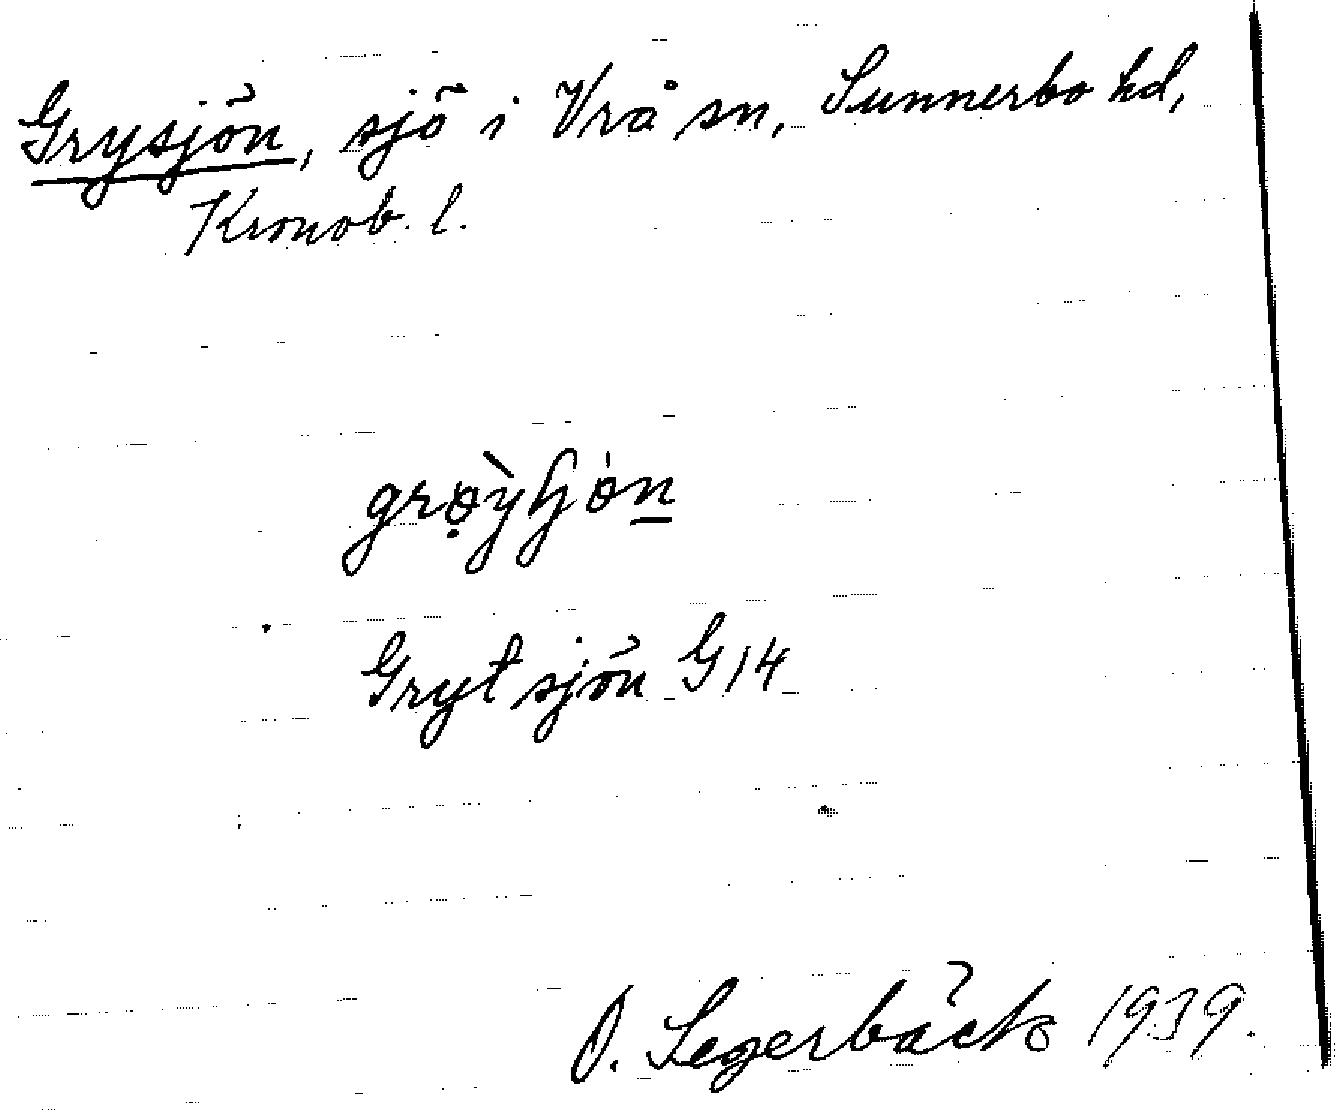 Grysjön, sjö i Vrå sn, Sunnerbo hd,
Kronob. l.
Grytsjön G14
O. Segerbäck 1939.